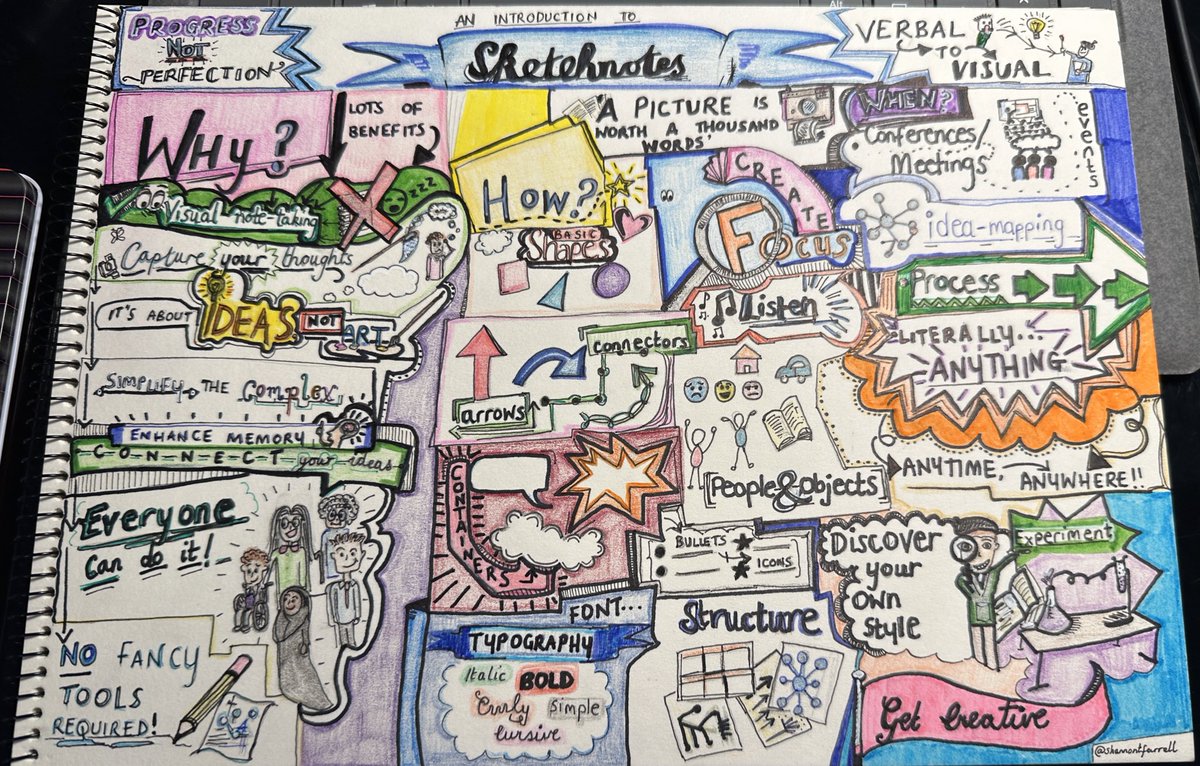 PROGRESS
NOT
PERFECTION
AN INTRODUCTION TO
Sketchnotes
VERBAL
TO
VISUAL
WHY?
LOTS OF
BENEFITS
Visual note-taking
zzzz
Capture your thoughts
IT'S ABOUT
IDEAS NOT ART
SIMPLIFY THE Complex
ENHANCE MEMORY
C-O-N-N-E-C-T your ideas
Everyone
can do it!
NO FANCY
TOOLS
REQUIRED!
HOW?
'A PICTURE IS
WORTH A THOUSAND
WORDS'
BASIC
Shapes
CREATE
FOCUS
Listen
connectors
arrows
CONTAINERS
People & objects
BULLETS
ICONS
FONT...
TYPOGRAPHY
Italic BOLD
Curly Simple
cursive
Structure
WHEN?
Conferences/
Meetings
events
idea-mapping
Process
LITERALLY...
ANYTHING
ANYTIME, ANYWHERE!!
Discover
your
own
style
Experiment
Get Creative
@shamontfarrell
Alt